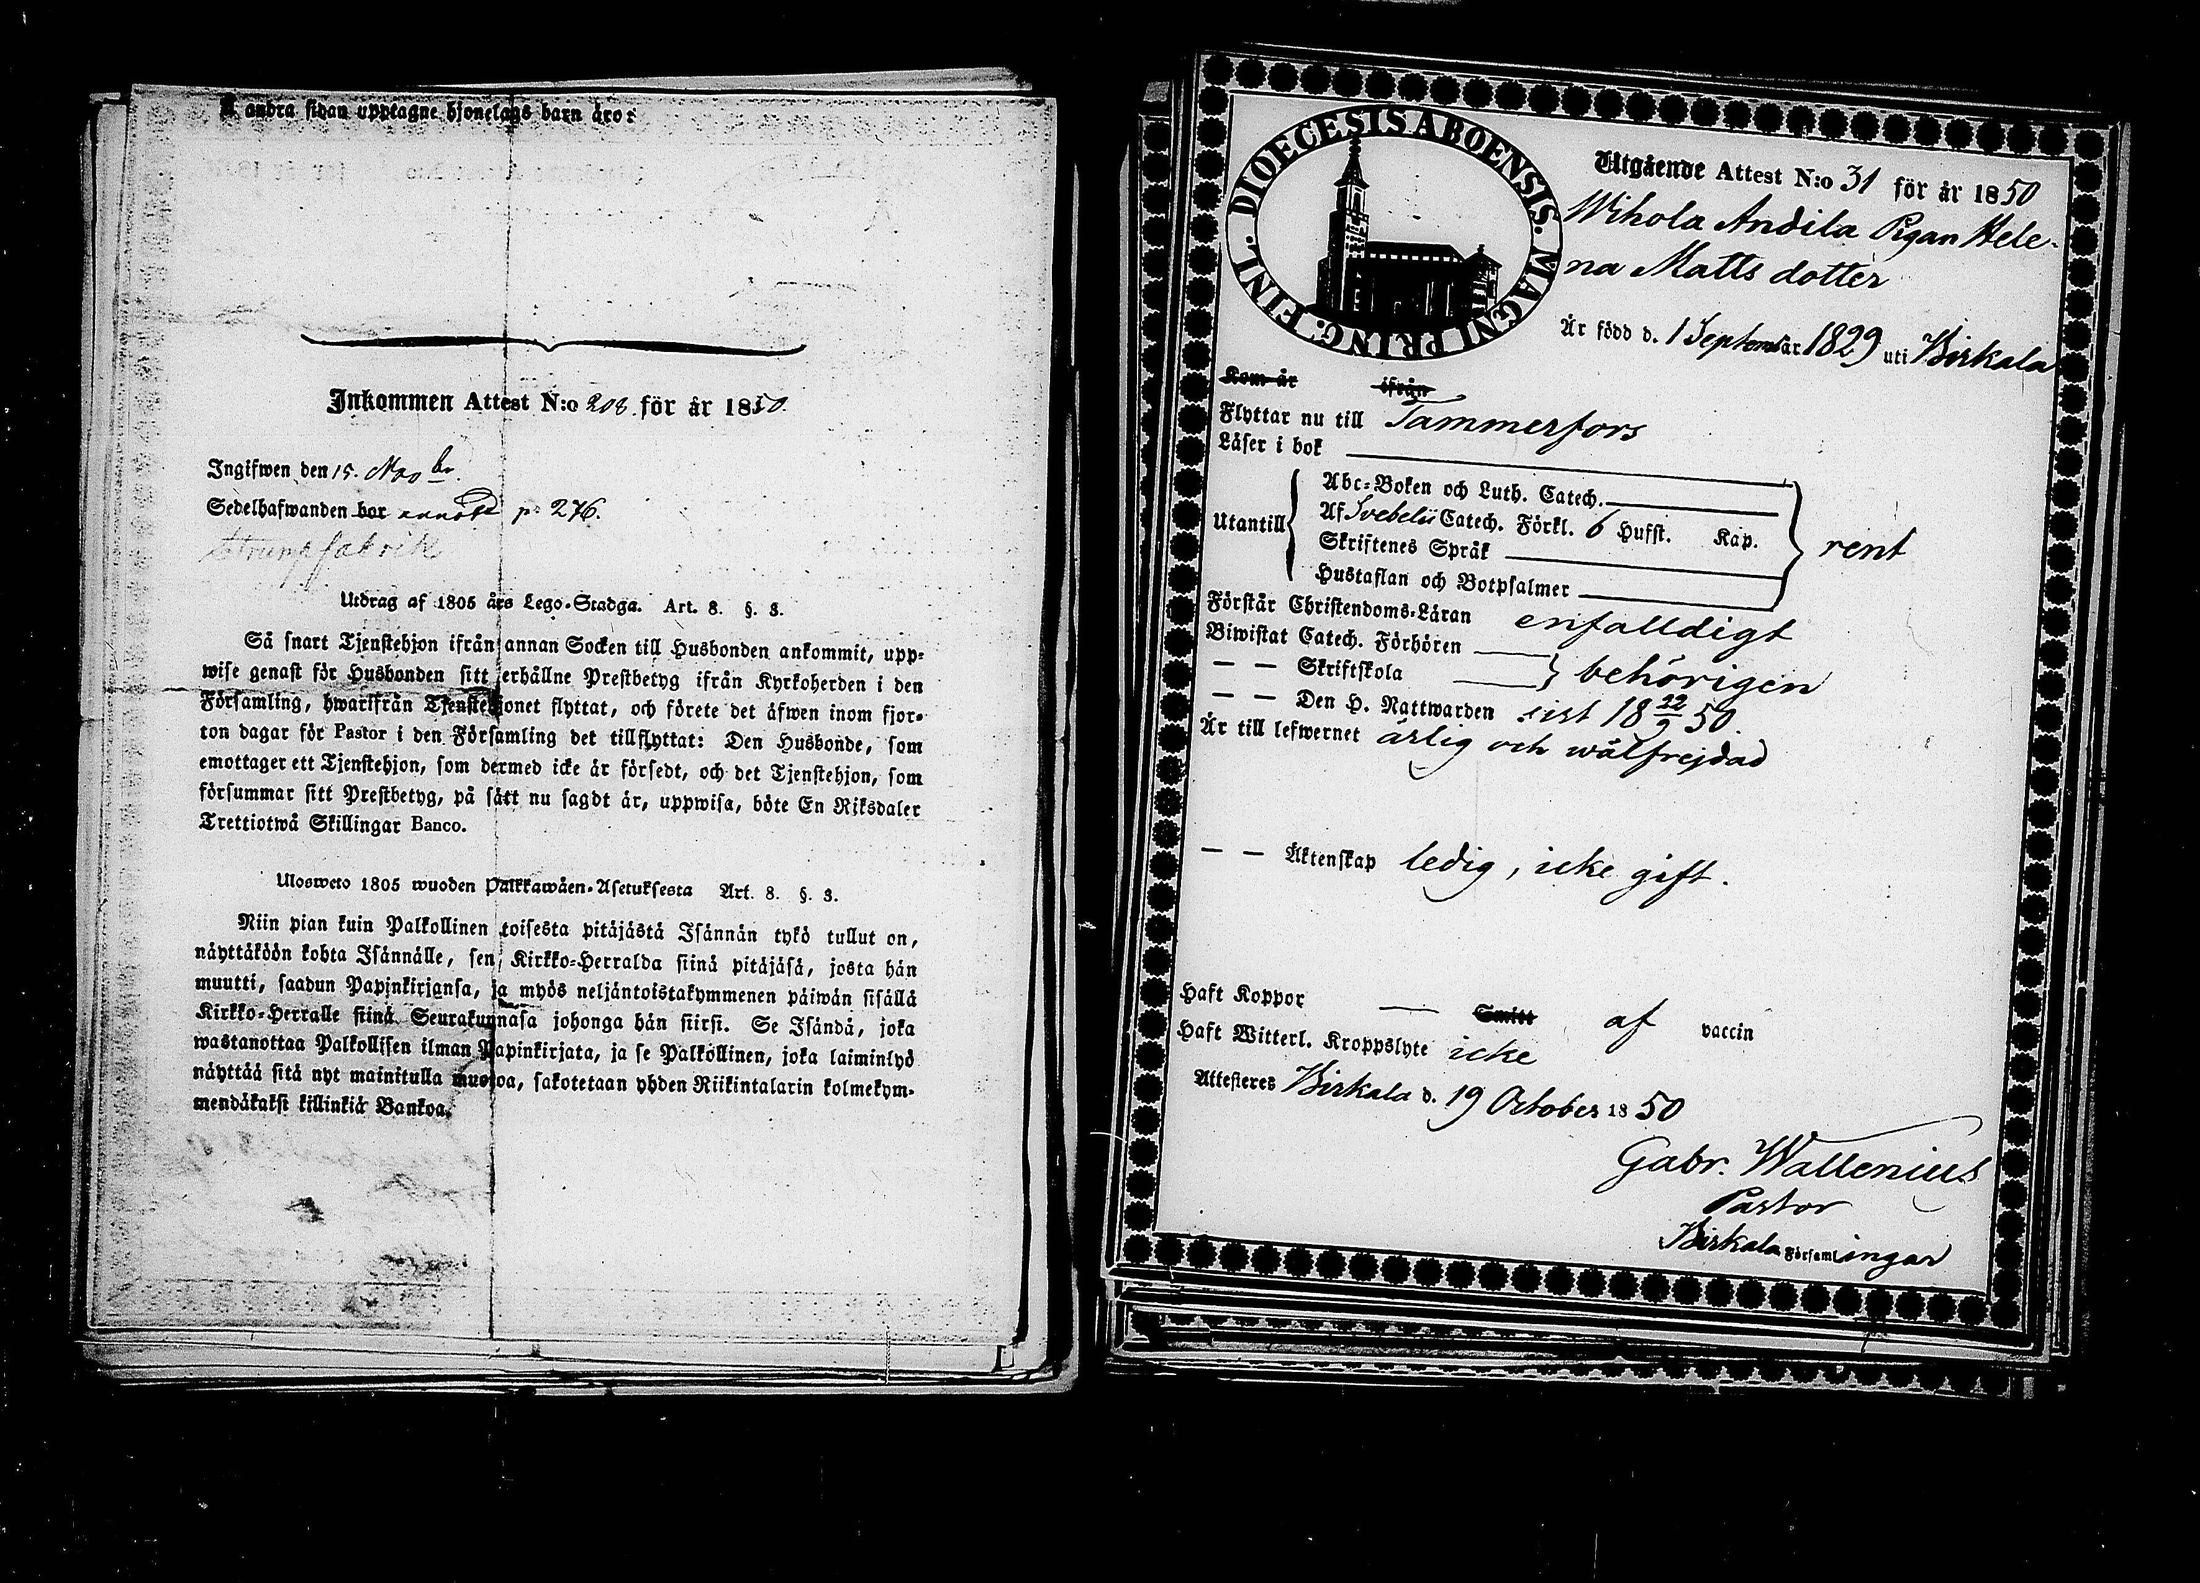 Å andra sidan upptagne hjonelags barn äro:
Inkommen Attest N:o 208. för år 1850.
Ingifwen den 15. Novbr.
Sedelhafwanden bor p. 276.
Strumpfabrik
Utdrag af 1805 års Lego-Stadga. Art. 8. §. 3.
Så snart Tjenstehjon ifrån annan Socken till Husbonden ankommit, upp-
wise genast för Husbonden sitt erhållne Prestbetyg ifrån Kyrkoherden i den
Församling, hwarifrån Tjenstehjonet flyttat, och förete det äfwen inom fjor-
ton dagar för Pastor i den Församling det tillflyttat: Den Husbonde, som
emottager ett Tjenstehjon, som dermed icke är försedt, och det Tjenstehjon, som
försummar sitt Prestbetyg, på sätt nu sagdt är, uppwisa, böte En Riksdaler
Trettiotwå Skillingar Banco.
Ulosweto 1805 wuoden Palkkawäen-Asetuksesta Art. 8. §. 3.
Niin pian kuin Palkollinen toisesta pitäjästä Isännän tykö tullut on,
näyttäköön kohta Isännälle, sen Kirkko-Herralda siinä pitäjäsä, josta hän
muutti, saadun Papinkirjansa, ja myös neljäntoistakymmenen päiwän sisällä
Kirkko-Herralle siinä Seurakunnasa johonga hän siirsi. Se Isändä, joka
wastanottaa Palkollisen ilman Papinkirjata, ja se Palkollinen, joka laiminlyö
näyttää sitä nyt mainitulla muotoa, sakotetaan yhden Riikintalarin kolmekym-
mendäkaksi killinkiä Bankoa.
DIOECESIS ABOENSIS. MAGNI PRINC. FINL.
Utgående Attest N:o 31 för år 1850
Wihola Andila Pigan Hele-
na Matts dotter
Är född d. 1 September år 1829 uti Birkala
Kom år ifrån
Flyttar nu till Tammerfors
Läser i bok
Abc-Boken och Luth. Catech.
Utantill Af Svebelii Catech. Förkl. 6 Hufst. Kap. rent
Skriftenes Språk
Hustaflan och Botpsalmer
Förstår Christendoms-Läran enfalldigt
Biwistat Catech. Förhören
— — Skriftskola behörigen
— — Den H. Nattwarden sist 18 22/9 50.
Är till lefwernet ärlig och wälfrejdad
— — Äktenskap ledig, icke gift.
Haft Koppor — Smitt af vaccin
Haft Witterl. Kroppslyte icke
Attesteres Birkala d. 19 October 1850
Gabr. Wallenius
Pastor
Birkala Församlingar